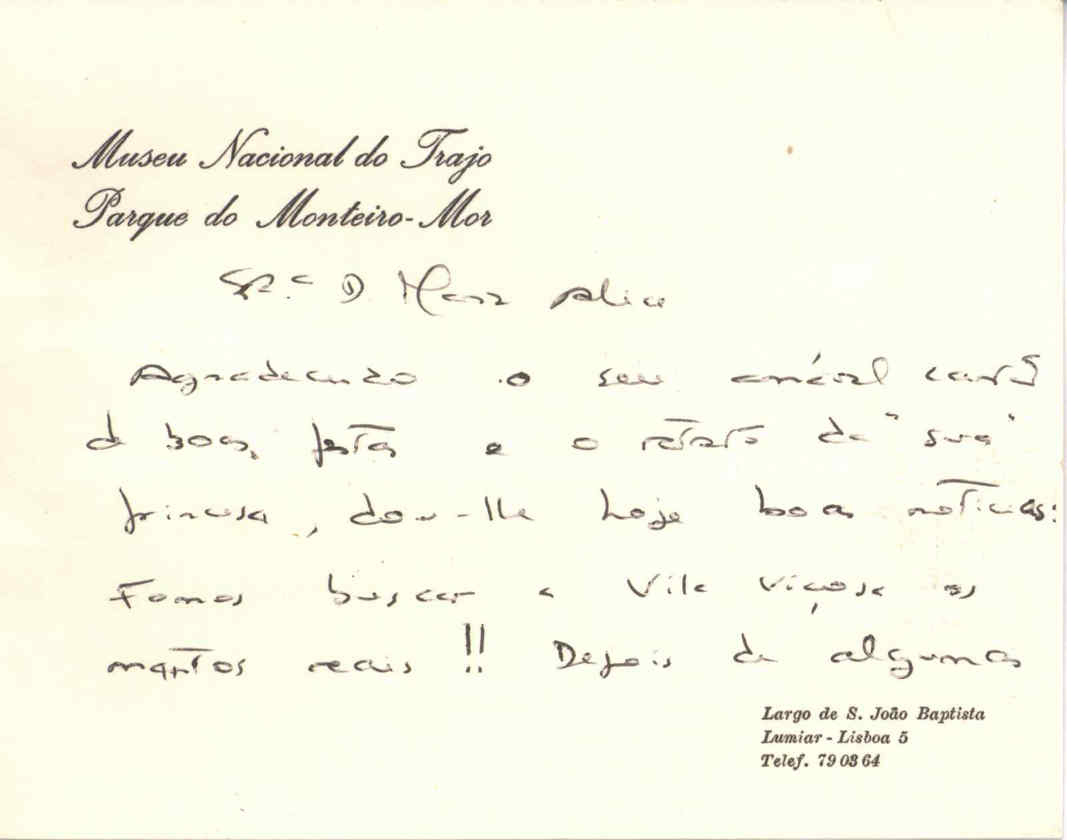 Museu Nacional do Trajo
Parque do Monteiro-Mor
Sr.ª D. Maria Alice
Agradecendo o seu amável cartão
de boas festas e o retrato da "sua"
princesa, dou-lhe hoje boas notícias:
Fomos buscar a Vila Viçosa os
mantos reais !! Depois de algumas
Largo de S. João Baptista
Lumiar - Lisboa 5
Telef. 79 03 64